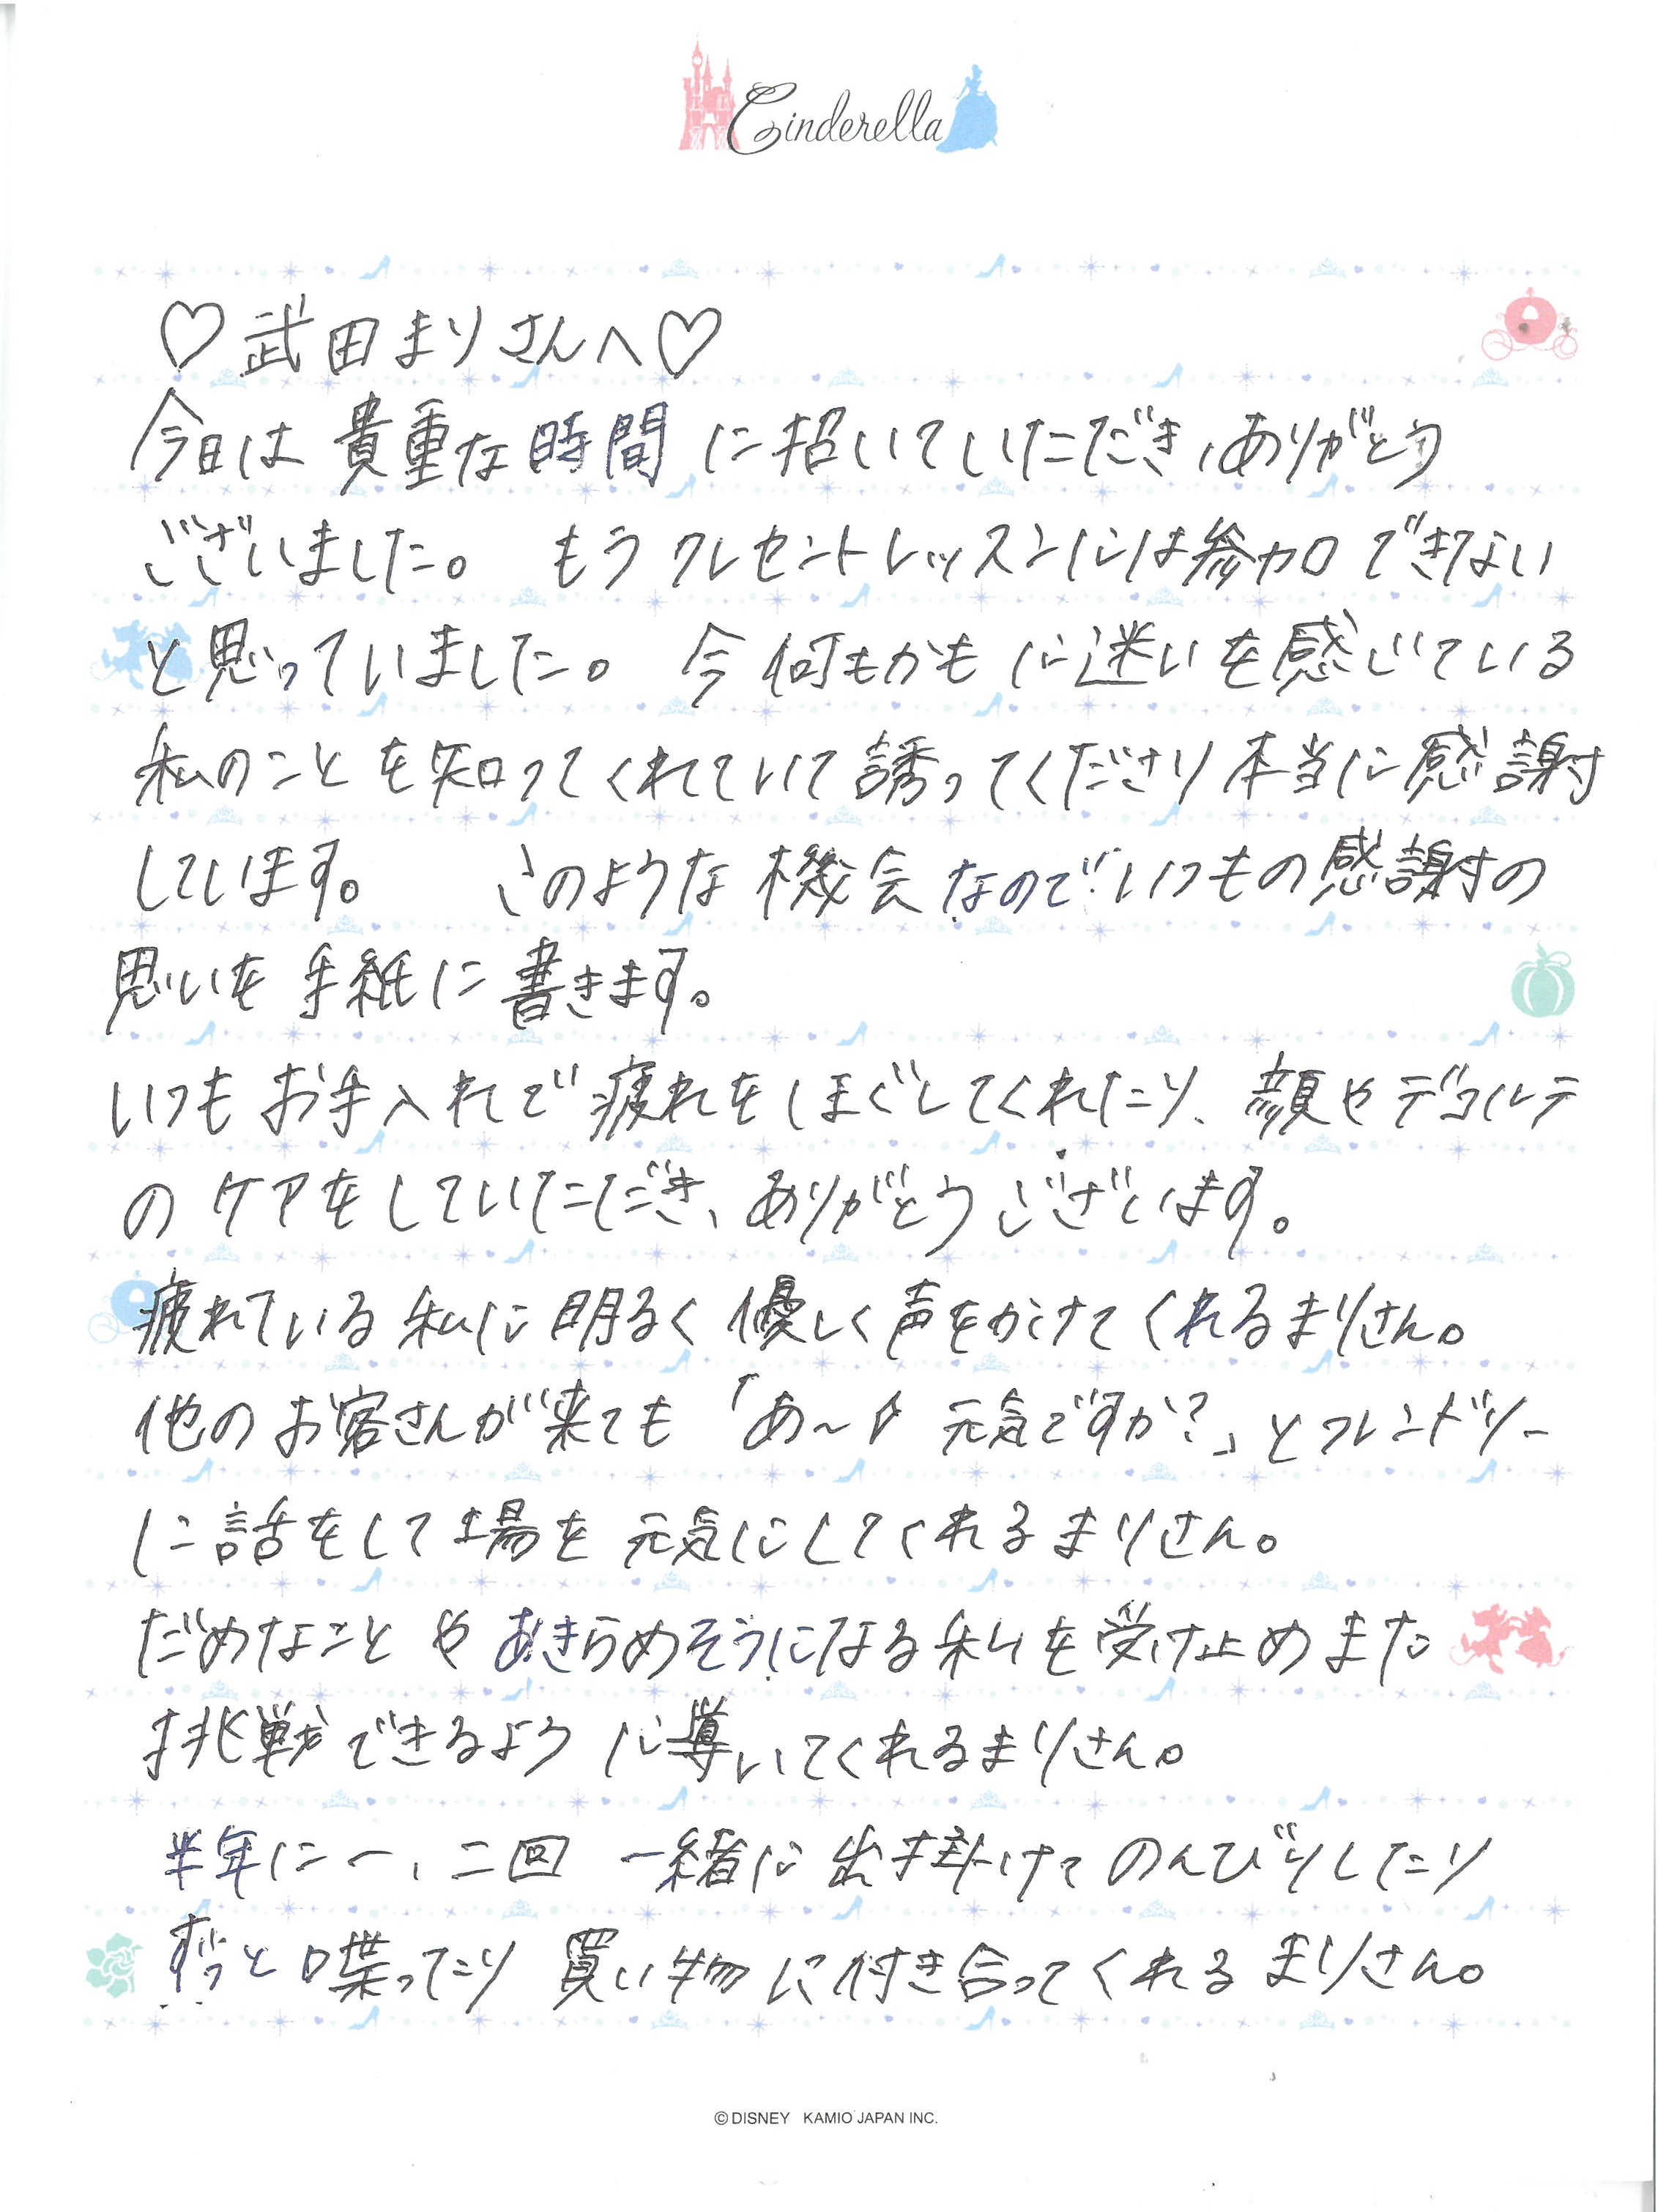 Cinderella
♡武田まりさんへ♡
今日は貴重な時間に招いていただき、ありがとう
ございました。 もうクレセントレッスンには参加できない
と思っていました。 今何もかもに迷いを感じている
私のことを知ってくれていて誘ってくださり本当に感謝
しています。 このような機会なのでいつもの感謝の
思いを手紙に書きます。
いつもお手入れで疲れをほぐしてくれたり、顔やデコルテ
のケアをしていただき、ありがとうございます。
疲れている私に明るく優しく声をかけてくれるまりさん。
他のお客さんが来ても「あ〜♪ 元気ですか?」とフレンドリー
に話をして場を元気にしてくれるまりさん。
だめなことやあきらめそうになる私を受け止めまた
挑戦できるように導いてくれるまりさん。
半年に一、二回 一緒に出掛けてのんびりしたり
ずっと喋ったり買い物に付き合ってくれるまりさん。
©DISNEY KAMIO JAPAN INC.